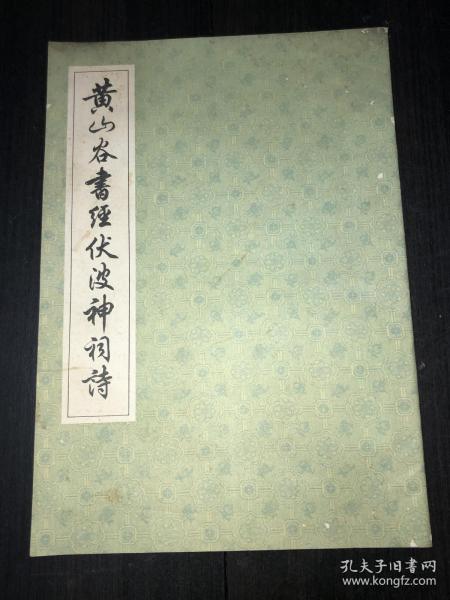 黄山谷書經伏波神祠詩
孔夫子旧书网
www.kongfz.com